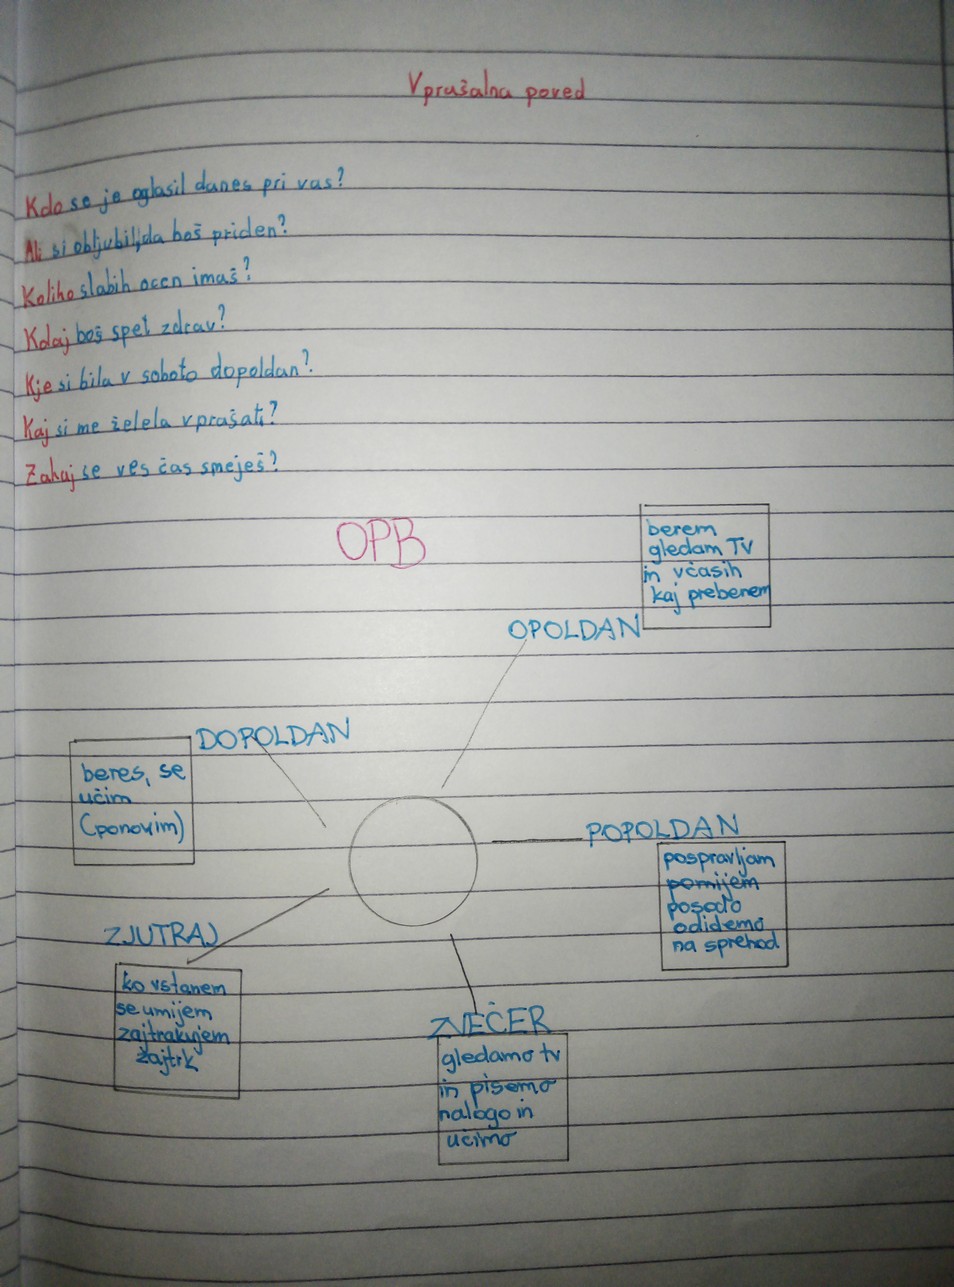 Vprašalna poved
Kdo se je oglasil danes pri vas?
Ali si obljubil, da boš priden?
Koliko slabih ocen imaš?
Kdaj boš spet zdrav?
Kje si bila v soboto dopoldan?
Kaj si me želela vprašati?
Zakaj se ves čas smeješ?
OPB
berem
gledam TV
in včasih
kaj preberem
OPOLDAN
DOPOLDAN
beres, se
učim
(ponovim)
POPOLDAN
pospravljam
pomijem
posodo
odidemo
na sprehod
ZJUTRAJ
ko vstanem
se umijem
zajtrakujem
žajtrk
ZVEČER
gledamo tv
in pisemo
nalogo in
učimo